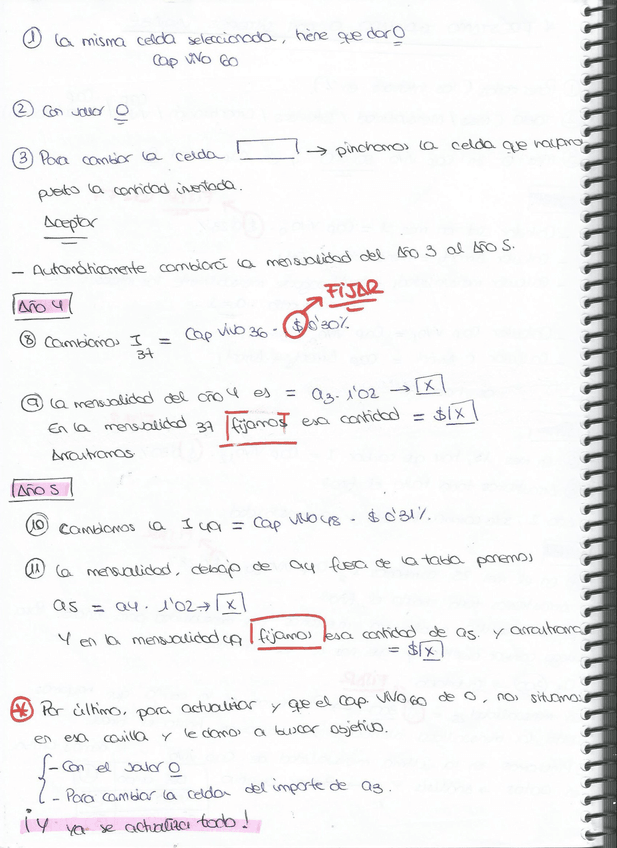 ① La misma celda seleccionada, tiene que dar 0
Cap vivo 60
② Con valor 0
③ Para cambiar la celda → pinchamos la celda que hayamos
puesto la cantidad inventada.
Aceptar
- Automáticamente cambiará la mensualidad del Año 3 al Año 5.
Año 4
FIJAR
⑧ Cambiamos I37 = Cap vivo 36 · $ 0'30%
⑨ La mensualidad del año 4 es = a3 · 1'02 → x
En la mensualidad 37 fijamos esa cantidad = $ x
Arrastramos
Año 5
⑩ Cambiamos la I 49 = Cap vivo 48 · $ 0'31%
⑪ La mensualidad, debajo de a4 fuera de la tabla ponemos
a5 = a4 · 1'02 → x
Y en la mensualidad 49 fijamos esa cantidad de a5. y arrastramos
= $ x
* Por último, para actualizar y que el Cap. Vivo 60 de 0, nos situamos
en esa casilla y le damos a buscar objetivo.
- Con el valor 0
- Para cambiar la celda del importe de a3.
¡Y ya se actualiza todo!